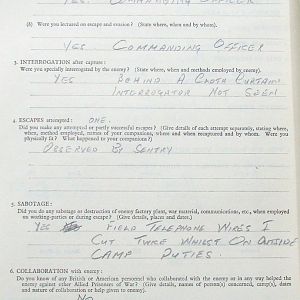 YES. COMMANDING OFFICER
(b) Were you lectured on escape and evasion? (State where, when and by whom).
YES. COMMANDING OFFICER
3. INTERROGATION after capture:
Were you specially interrogated by the enemy? (State where, when and methods employed by enemy).
YES BEHIND A CLOTH CURTAIN
INTERROGATOR NOT SEEN
4. ESCAPES attempted: ONE.
Did you make any attempted or partly successful escapes? (Give details of each attempt separately, stating where,
when, method employed, names of your companions, where and when recaptured and by whom. Were you
physically fit? What happened to your companions?)
OBSERVED BY SENTRY
5. SABOTAGE:
Did you do any sabotage or destruction of enemy factory plant, war material, communications, etc., when employed
on working-parties or during escape? (Give details, places and dates.)
YES FIELD TELEPHONE WIRES I
CUT TWICE WHILST ON OUTSIDE
CAMP DUTIES.
6. COLLABORATION with enemy:
Do you know of any British or American personnel who collaborated with the enemy or in any way helped the
enemy against other Allied Prisoners of War? (Give details, names of person(s) concerned, camp(s), dates
and nature of collaboration or help given to enemy).
NO